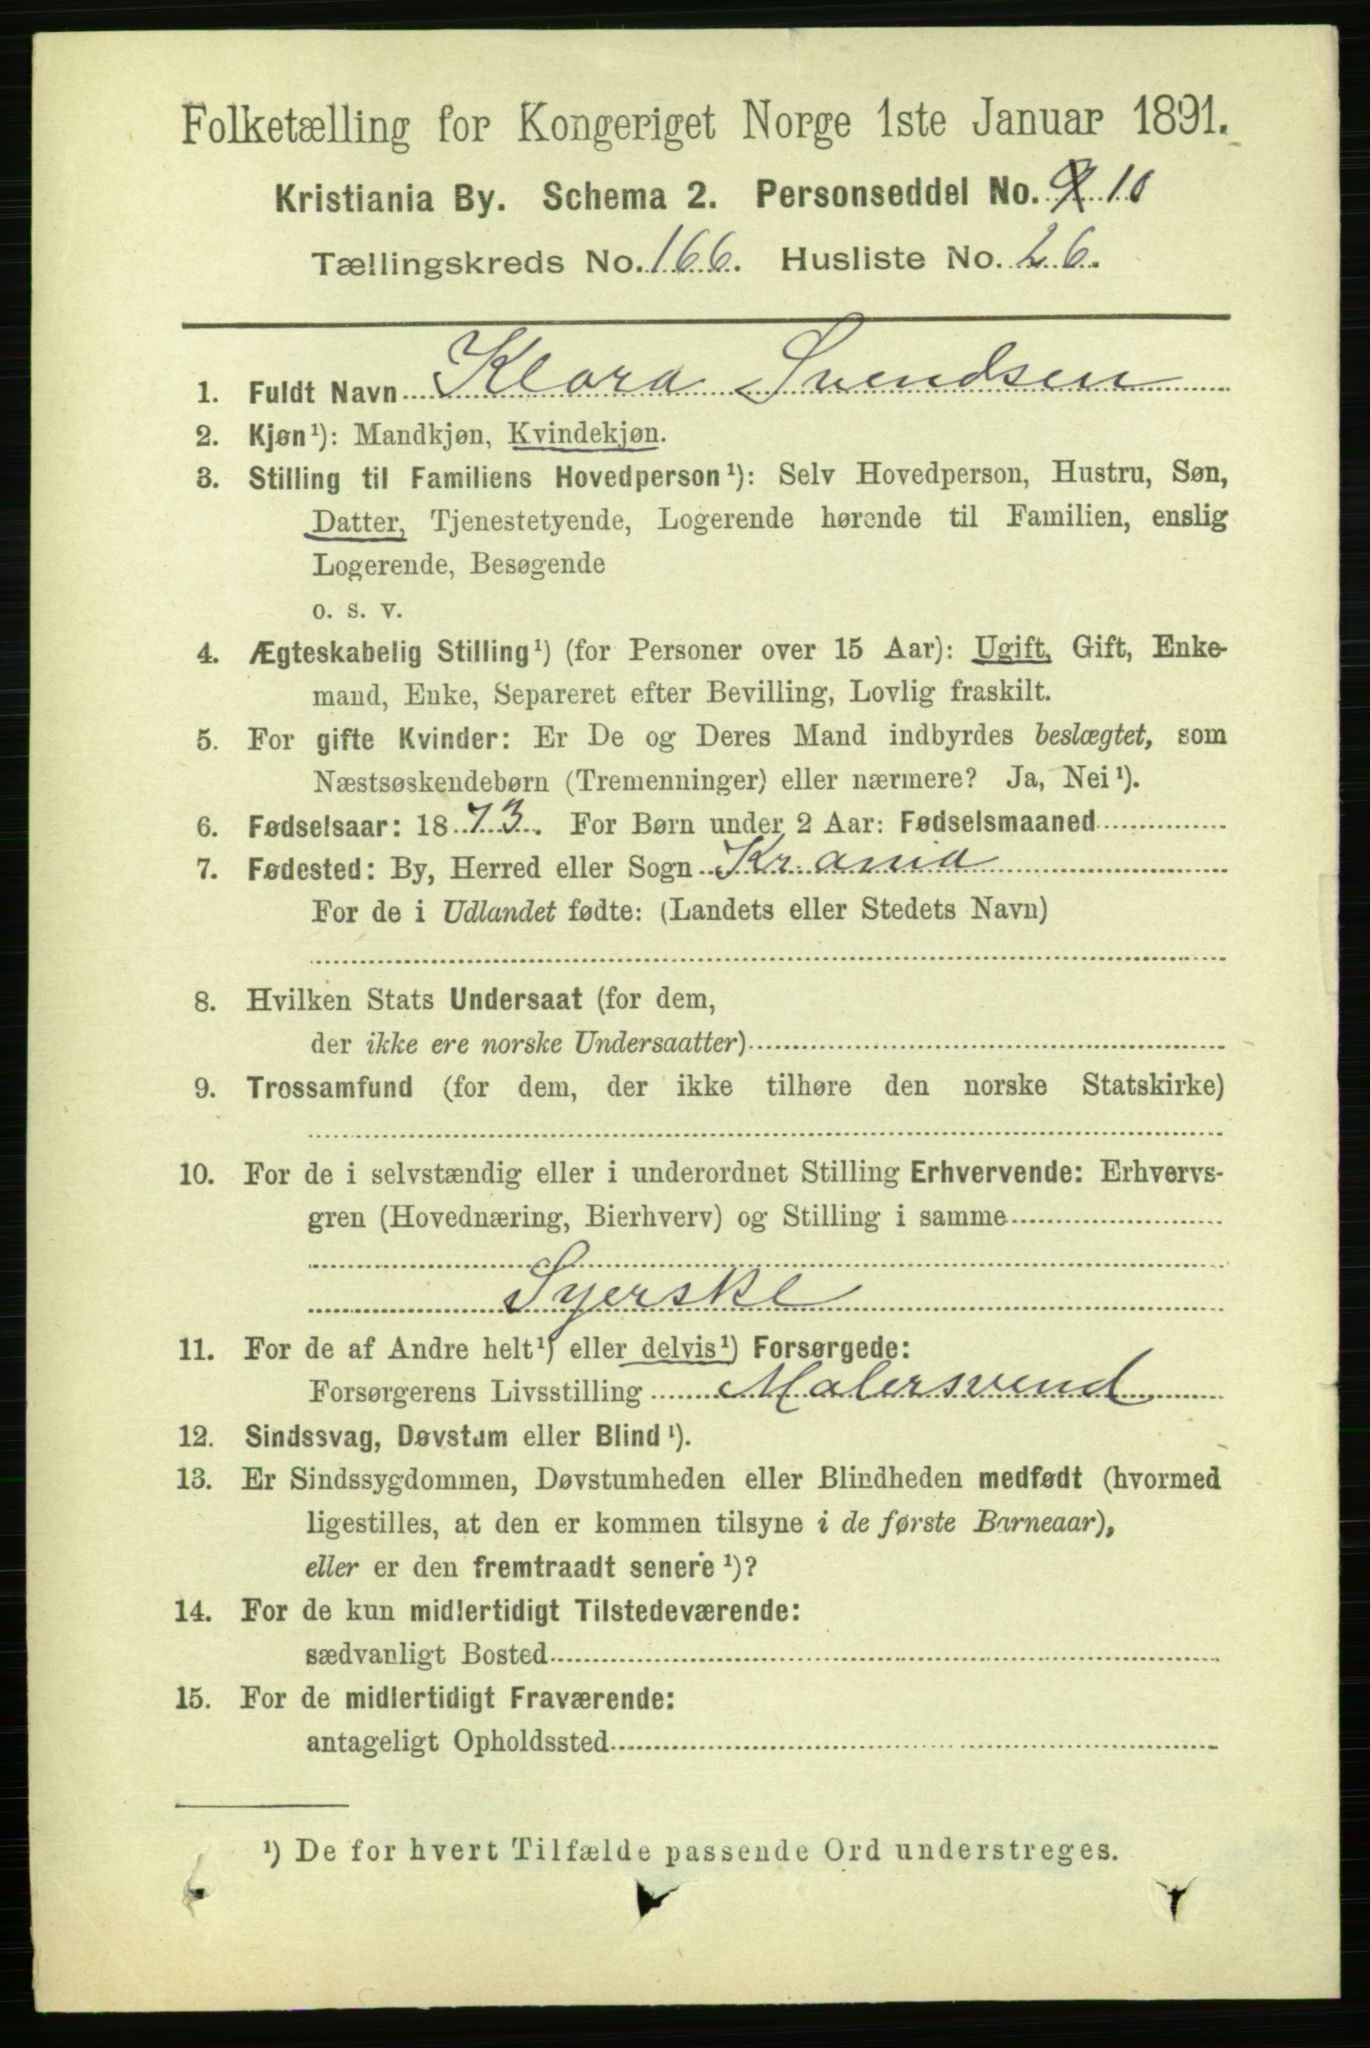 Folketælling for Kongeriget Norge 1ste Januar 1891.
Kristiania By. Schema 2. Personseddel No. 9 10
Tællingskreds No. 166. Husliste No. 26.
1. Fuldt Navn Klara Svendsen
2. Kjøn¹): Mandkjøn, Kvindekjøn.
3. Stilling til Familiens Hovedperson¹): Selv Hovedperson, Hustru, Søn,
Datter, Tjenestetyende, Logerende hørende til Familien, enslig
Logerende, Besøgende
o. s. v.
4. Ægteskabelig Stilling¹) (for Personer over 15 Aar): Ugift, Gift, Enke-
mand, Enke, Separeret efter Bevilling, Lovlig fraskilt.
5. For gifte Kvinder: Er De og Deres Mand indbyrdes beslægtet, som
Næstsøskendebørn (Tremenninger) eller nærmere? Ja, Nei¹).
6. Fødselsaar: 1873. For Børn under 2 Aar: Fødselsmaaned
7. Fødested: By, Herred eller Sogn Kr.ania
For de i Udlandet fødte: (Landets eller Stedets Navn)
8. Hvilken Stats Undersaat (for dem,
der ikke ere norske Undersaatter)
9. Trossamfund (for dem, der ikke tilhøre den norske Statskirke)
10. For de i selvstændig eller i underordnet Stilling Erhvervende: Erhvervs-
gren (Hovednæring, Bierhverv) og Stilling i samme
Syerske
11. For de af Andre helt¹) eller delvis¹) Forsørgede:
Forsørgerens Livsstilling Malersvend
12. Sindssvag, Døvstum eller Blind¹).
13. Er Sindssygdommen, Døvstumheden eller Blindheden medfødt (hvormed
ligestilles, at den er kommen tilsyne i de første Barneaar),
eller er den fremtraadt senere¹)?
14. For de kun midlertidigt Tilstedeværende:
sædvanligt Bosted
15. For de midlertidigt Fraværende:
antageligt Opholdssted
¹) De for hvert Tilfælde passende Ord understreges.